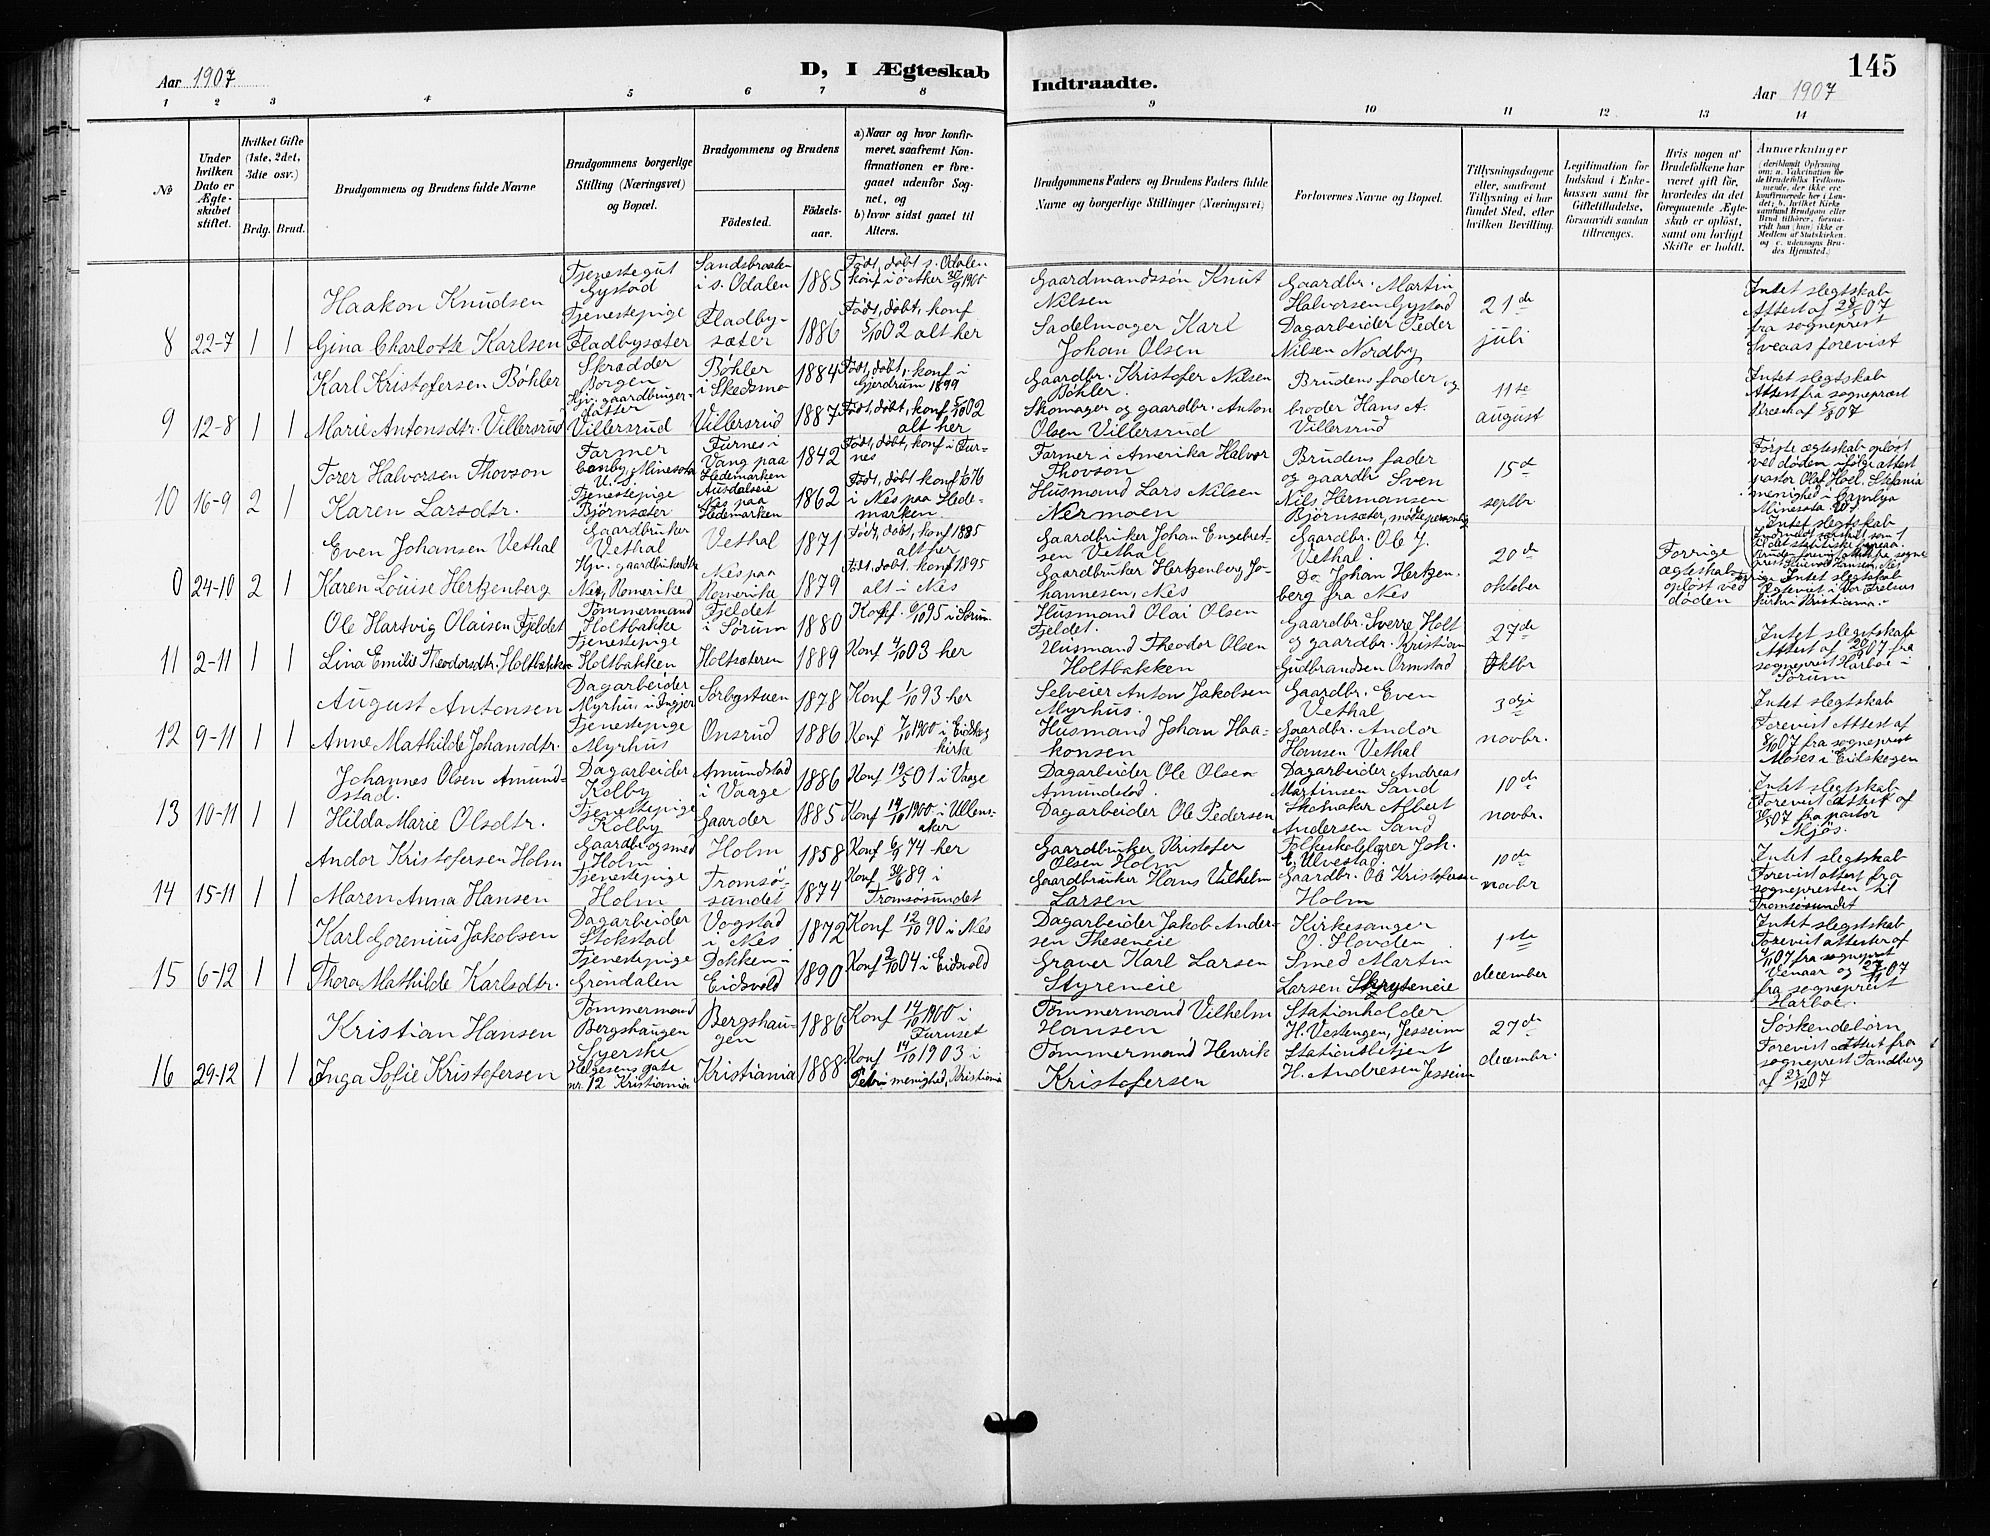 Aar 1907
D, I Ægteskab
Indtraadte.
Aar 1907
145
1 2 3 4 5 6 7 8 9 10 11 12 13 14
No
Under hvilken Dato er Ægteskabet stiftet.
Hvilket Gifte (1ste, 2det, 3die osv.)
Brdg. Brud.
Brudgommens og Brudens fulde Navne
Brudgommens borgerlige Stilling (Næringsvei) og Bopæl.
Brudgommens og Brudens
Fødested.
Fødselsaar.
a) Naar og hvor konfirmeret, saafremt Konfirmationen er foregaaet udenfor Sognet, og
b) hvor sidst gaaet til Alters.
Brudgommens Faders og Brudens Faders fulde Navne og borgerlige Stillinger (Næringsvei)
Forlovernes Navne og Bopæl.
Tillysningsdagene eller, saafremt Tillysning ei har fundet Sted, efter hvilken Bevilling.
Legitimation for Indskud i Enkekassen samt for Giftetilladelse, forsaavidt saadan tiltrænges.
Hvis nogen af Brudefolkene har været gift før, hvorledes da det foregaaende Ægteskab er opløst, samt om lovligt Skifte er holdt.
Anmerkninger
(deriblandt Oplysning om: a. Vakcination for de Brudefolks Vedkommende, der ikke ere konfirmerede her i Landet; b. hvilket Kirkesamfund Brudgom eller Brud tilhører, forsaavidt han (hun) ikke er Medlem af Statskirken, og c. udensogns Brudes Hjemsted.)
Haakon Knudsen
Tjenestegut Gystad
Sandsbraaten i s. Odalen
1885
Født, døbt s. Odalen konf i ø. Aker 30/9 1900
Gaardmandssøn Knut Nilsen
Gaardbr. Martin Halvorsen Gystad
21de juli
Intet slegtskab Attest af 28/5 07 fra sogneprest Sveaas forevist
8 22-7 1 1
Gina Charlotte Karlsen
Tjenestepige Fladbysæter
Fladbysæter
1886
Født, døbt, konf 5/10 02 alt her
Sadelmager Karl Johan Olsen
Dagarbeider Peder Nilsen Nordby
Karl Kristofersen Bøhler
Skrædder Borgen
Bøhler i Skedsmo
1884
Født, døbt, konf i Gjerdrum 1899
Gaardbr. Kristofer Nilsen Bøhler.
Brudens fader og broder Hans A. Villersrud
11te august
Intet slegtskab
9 12-8 1 1
Marie Antonsdtr. Villersrud
Hjv. gaardbruger-datter Villersrud
Villersrud
1887
Født, døbt, konf 5/10 02 alt her
Skomager og gaardbr. Anton Olsen Villersrud
Torer Halvorsen Thovson
Farmer Canby, Minesota U.S.
Furnes i Vang paa Hedemarken
1842
Født, døbt, konf i Furnes
Farmer i Amerika Halvor Thovson
Brudens fader og gaardbr Sven
15de septbr
Første ægteskab opløst ved døden ifølge attest pastor Olaf Holl, Stefania menighed i Canbya Minesota
Intet slegtskab
10 16-9 2 1
Karen Larsdtr.
Tjenestepige Bjørnsæter
Nes paa Hedemarken
1862
Født, døbt konf 1876 i Nes paa Hedemarken
Husmand Lars Nilsen Nermoen
Nils Hermansen Bjørnsæter, møtte personlig
Even Johansen Vethal
Gaardbruker Vethal
Vethal
1871
Født, døbt, konf 1885 alt her
Gaardbruker Johan Engebretsen Vethal
Gaardbr. Ole J. Vethal.
20de oktober
Forrige ægteskab opløst ved døden
0 24-10 2 1
Karen Louise Hertzenberg
Hjv. gaardbrukerdtr Nes, Romerike
Nes paa Romerike
1879
Født, døbt, konf 1895 alt i Nes
Gaardbruker Hertzenberg Johannesen, Nes
Do Johan Hertzenberg fra Nes
Ole Hartvig Olaisen Fjeldet
Tømmermand Holtbakke
Fjeldet i Sørum
1880
Konf. 6/10 95 i Sørum
Husmand Olai Olsen Fjeldet.
Gaardbr. Sverre Holt og gaardbr. Kristian Gudbrandsen Ormstad
27de Oktbr
Intet slegtskab Attest af 07 fra sogneprest Harboe i Sørum
11 2-11 1 1
Lina Emilie Theodorsdtr. Holtbakken
Tjenestepige Holtbakken
Holtsæteren
1889
Konf 4/10 03 her
Husmand Theodor Olsen Holtbakken
August Antonsen
Dagarbeider Myrhus
Sørbystuen
1878
Konf 1/10 93 her
Selveier Anton Jakobsen Myrhus.
Gaardbr. Even Vethal
3die novbr.
Intet slegtskab Forevist Attest af 8/10 07 fra sogneprest Moses i Eidskogen
12 9-11 1 1
Anne Mathilde Johansdtr.
Tjenestepige Myrhus
Onsrud
1886
Konf 7/10 1900 i Eidskog kirke
Husmand Johan Haakonsen
Gaardbr. Andor Hansen Vethal
Johannes Olsen Amundstad.
Dagarbeider Kolby
Amundstad i Vaage
1886
Konf 19/5 01 i Vaage
Dagarbeider Ole Olsen Amundstad.
Dagarbeider Andreas Martinsen Sand
10de novbr.
Intet slegtskab Forevist Attest af 07 fra pastor Mjøs.
13 10-11 1 1
Hilda Marie Olsdtr.
Tjenestepige Kolby
Gaarder
1885
Konf 14/10 1900 i Ullensaker
Dagarbeider Ole Pedersen
Skomaker Albert Andersen Sand
Andor Kristofersen Holm
Gaardbr. og smed Holm
Holm
1858
Konf 6/9 74 her
Gaardbruker Kristofer Olsen Holm
Folkeskolelærer Joh. E. Ulvestad.
10de novbr
Intet slegtskab Forevist attest fra sognepresten til Tromsøsundet
14 15-11 1 1
Maren Anna Hansen
Tjenestepige Holm
Tromsøsundet
1874
Konf 30/6 89 i Tromsøsundet
Gaardbruker Hans Vilhelm Larsen
Gaardbr. Ole Kristofersen Holm
Karl Gorenius Jakobsen
Dagarbeider Stokstad
Vogstad i Nes
1872
Konf 12/10 90 i Nes
Dagarbeider Jakob Andersen Theseneie
Kirkesanger O. Hovden
1ste december
Intet slegtskab Forevist attester af 4/11 07 fra sogneprest Venaar og 27/11 07 fra sogneprest Harboe.
15 6-12 1 1
Thora Mathilde Karlsdtr.
Tjenestepige Grøndalen
Dokken i Eidsvold
1890
Konf 2/10 04 i Eidsvold
Graver Karl Larsen Styreneie
Smed Martin Larsen Styreneie
Kristian Hansen
Tømmermand Bergshaugen
Bergshaugen
1886
Konf 14/10 1900 i Furuset
Tømmermand Vilhelm Hansen
Stationholder H. Vestengen, Jesseim
27de decembr.
Søskendebørn Forevist Attest fra sogneprest Tandberg af 23/12 07
16 29-12 1 1
Inga Sofie Kristofersen
Syerske Helgesens gate nr. 12 Kristiania
Kristiania
1888
Konf 14/10 1903 i Petri menighed, Kristiania
Tømmermand Henrik Kristofersen
Stationsbetjent H. Andresen Jesseim